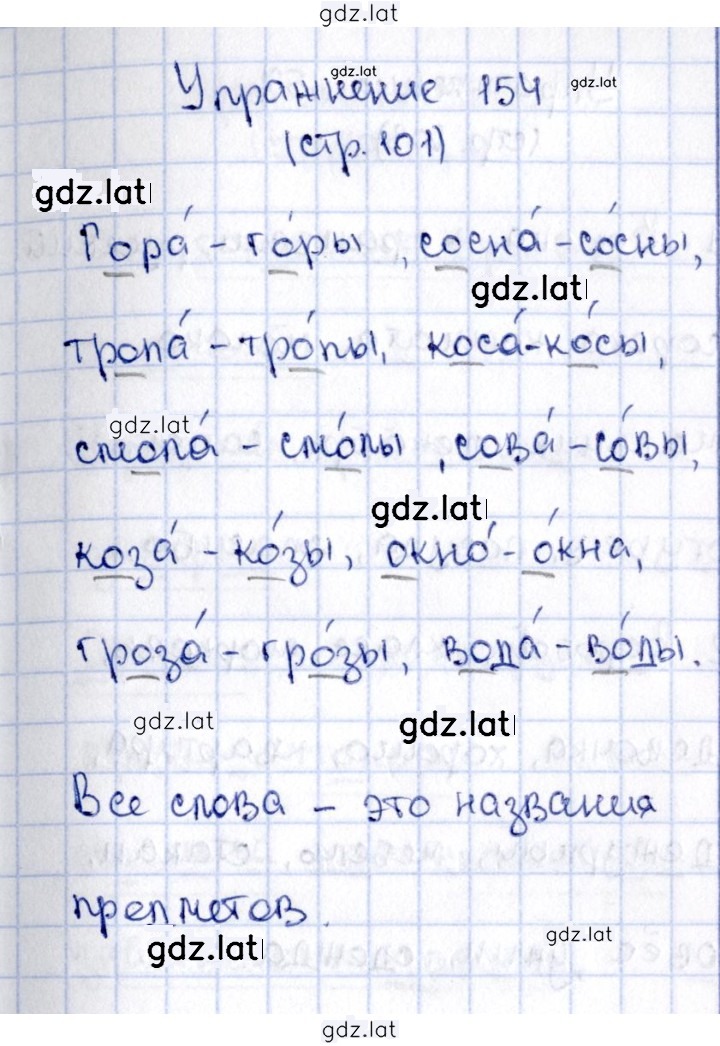 gdz.lat
Упражнение 154
gdz.lat
gdz.lat
(стр.101)
gdz.lat
Гора́ - го́ры, сосна́ - со́сны,
gdz.lat
тропа́ - тро́пы, коса́ - ко́сы,
gdz.lat
смола́ - смо́лы, сова́ - со́вы,
gdz.lat
коза́ - ко́зы, окно́ - о́кна,
гроза́ - гро́зы, вода́ - во́ды.
gdz.lat
gdz.lat
Все слова - это названия
предметов.
gdz.lat
gdz.lat
gdz.lat